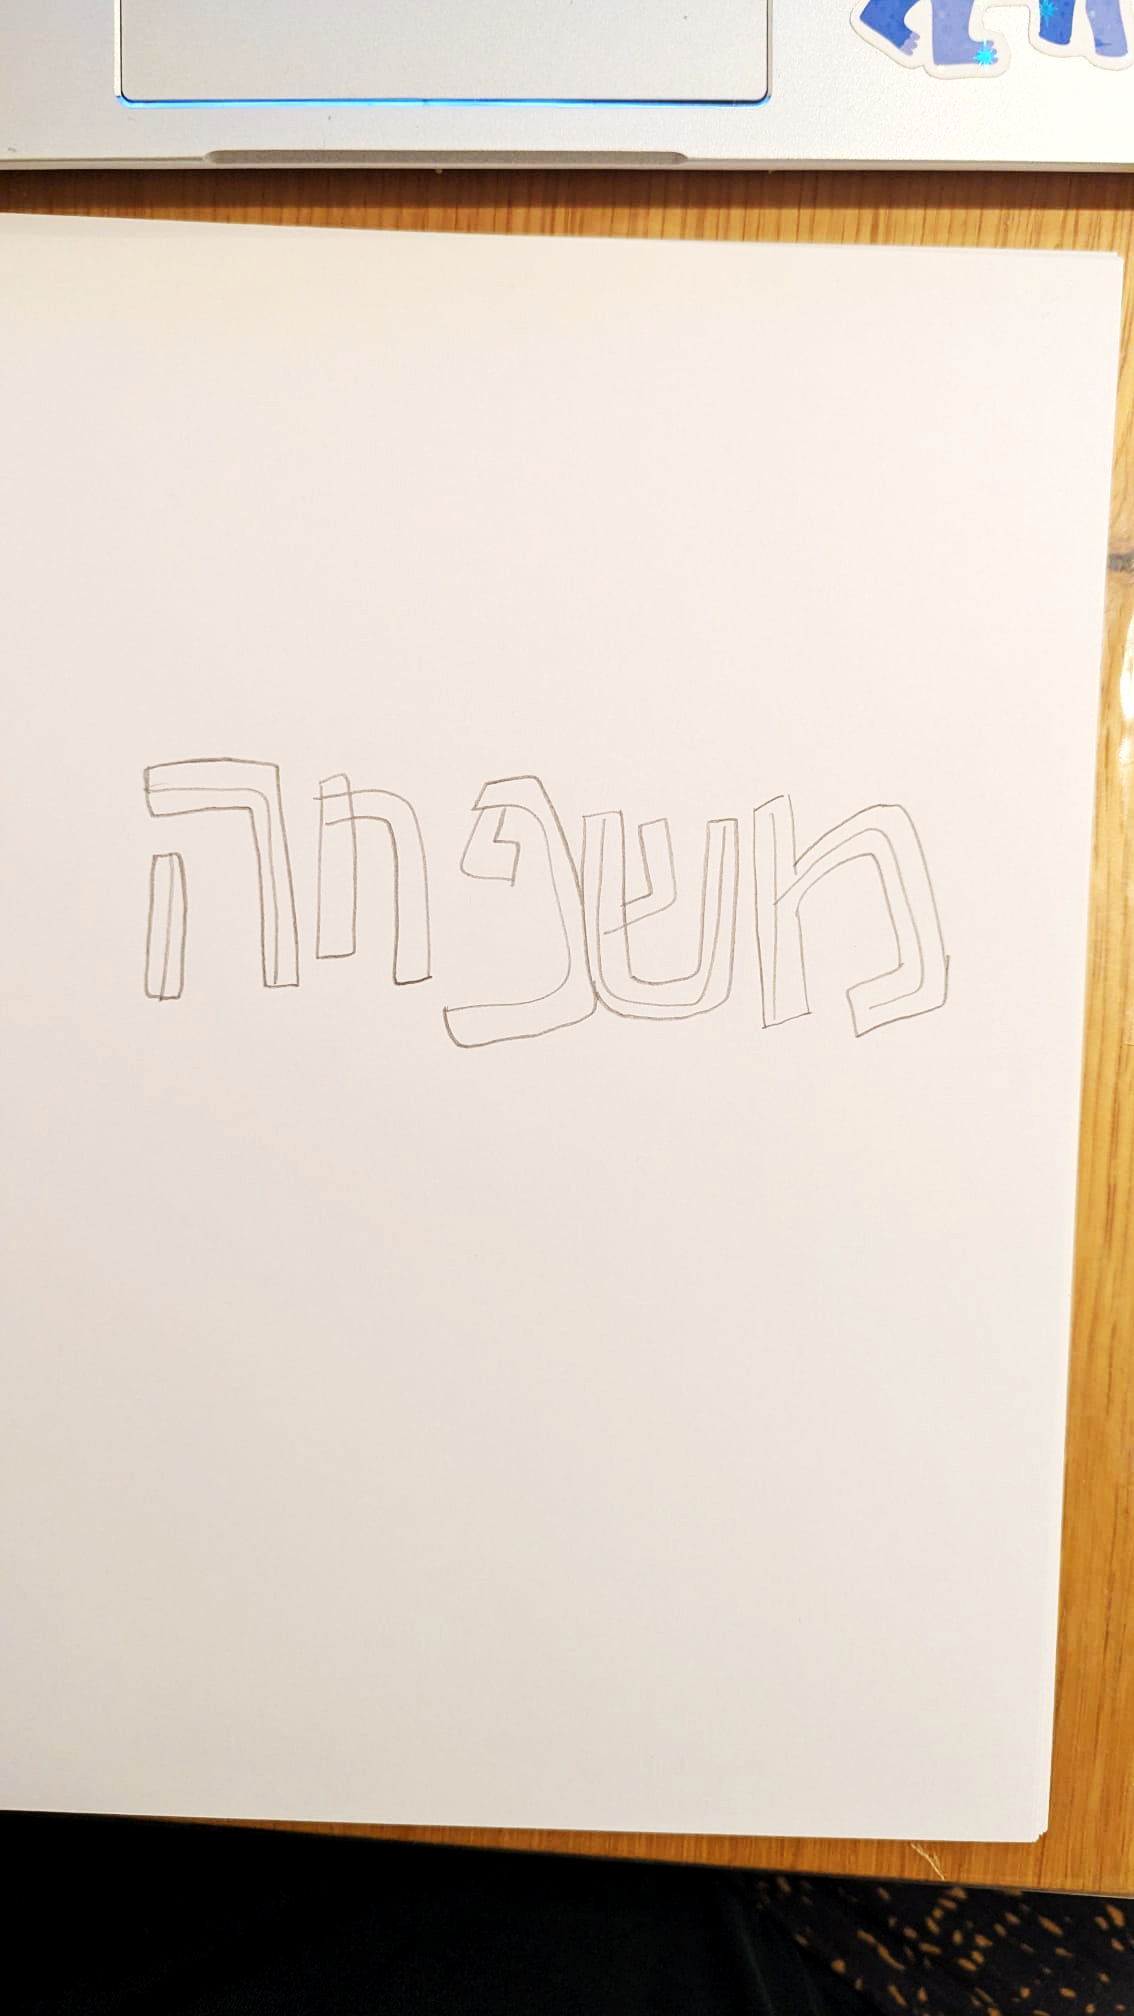 משפחה